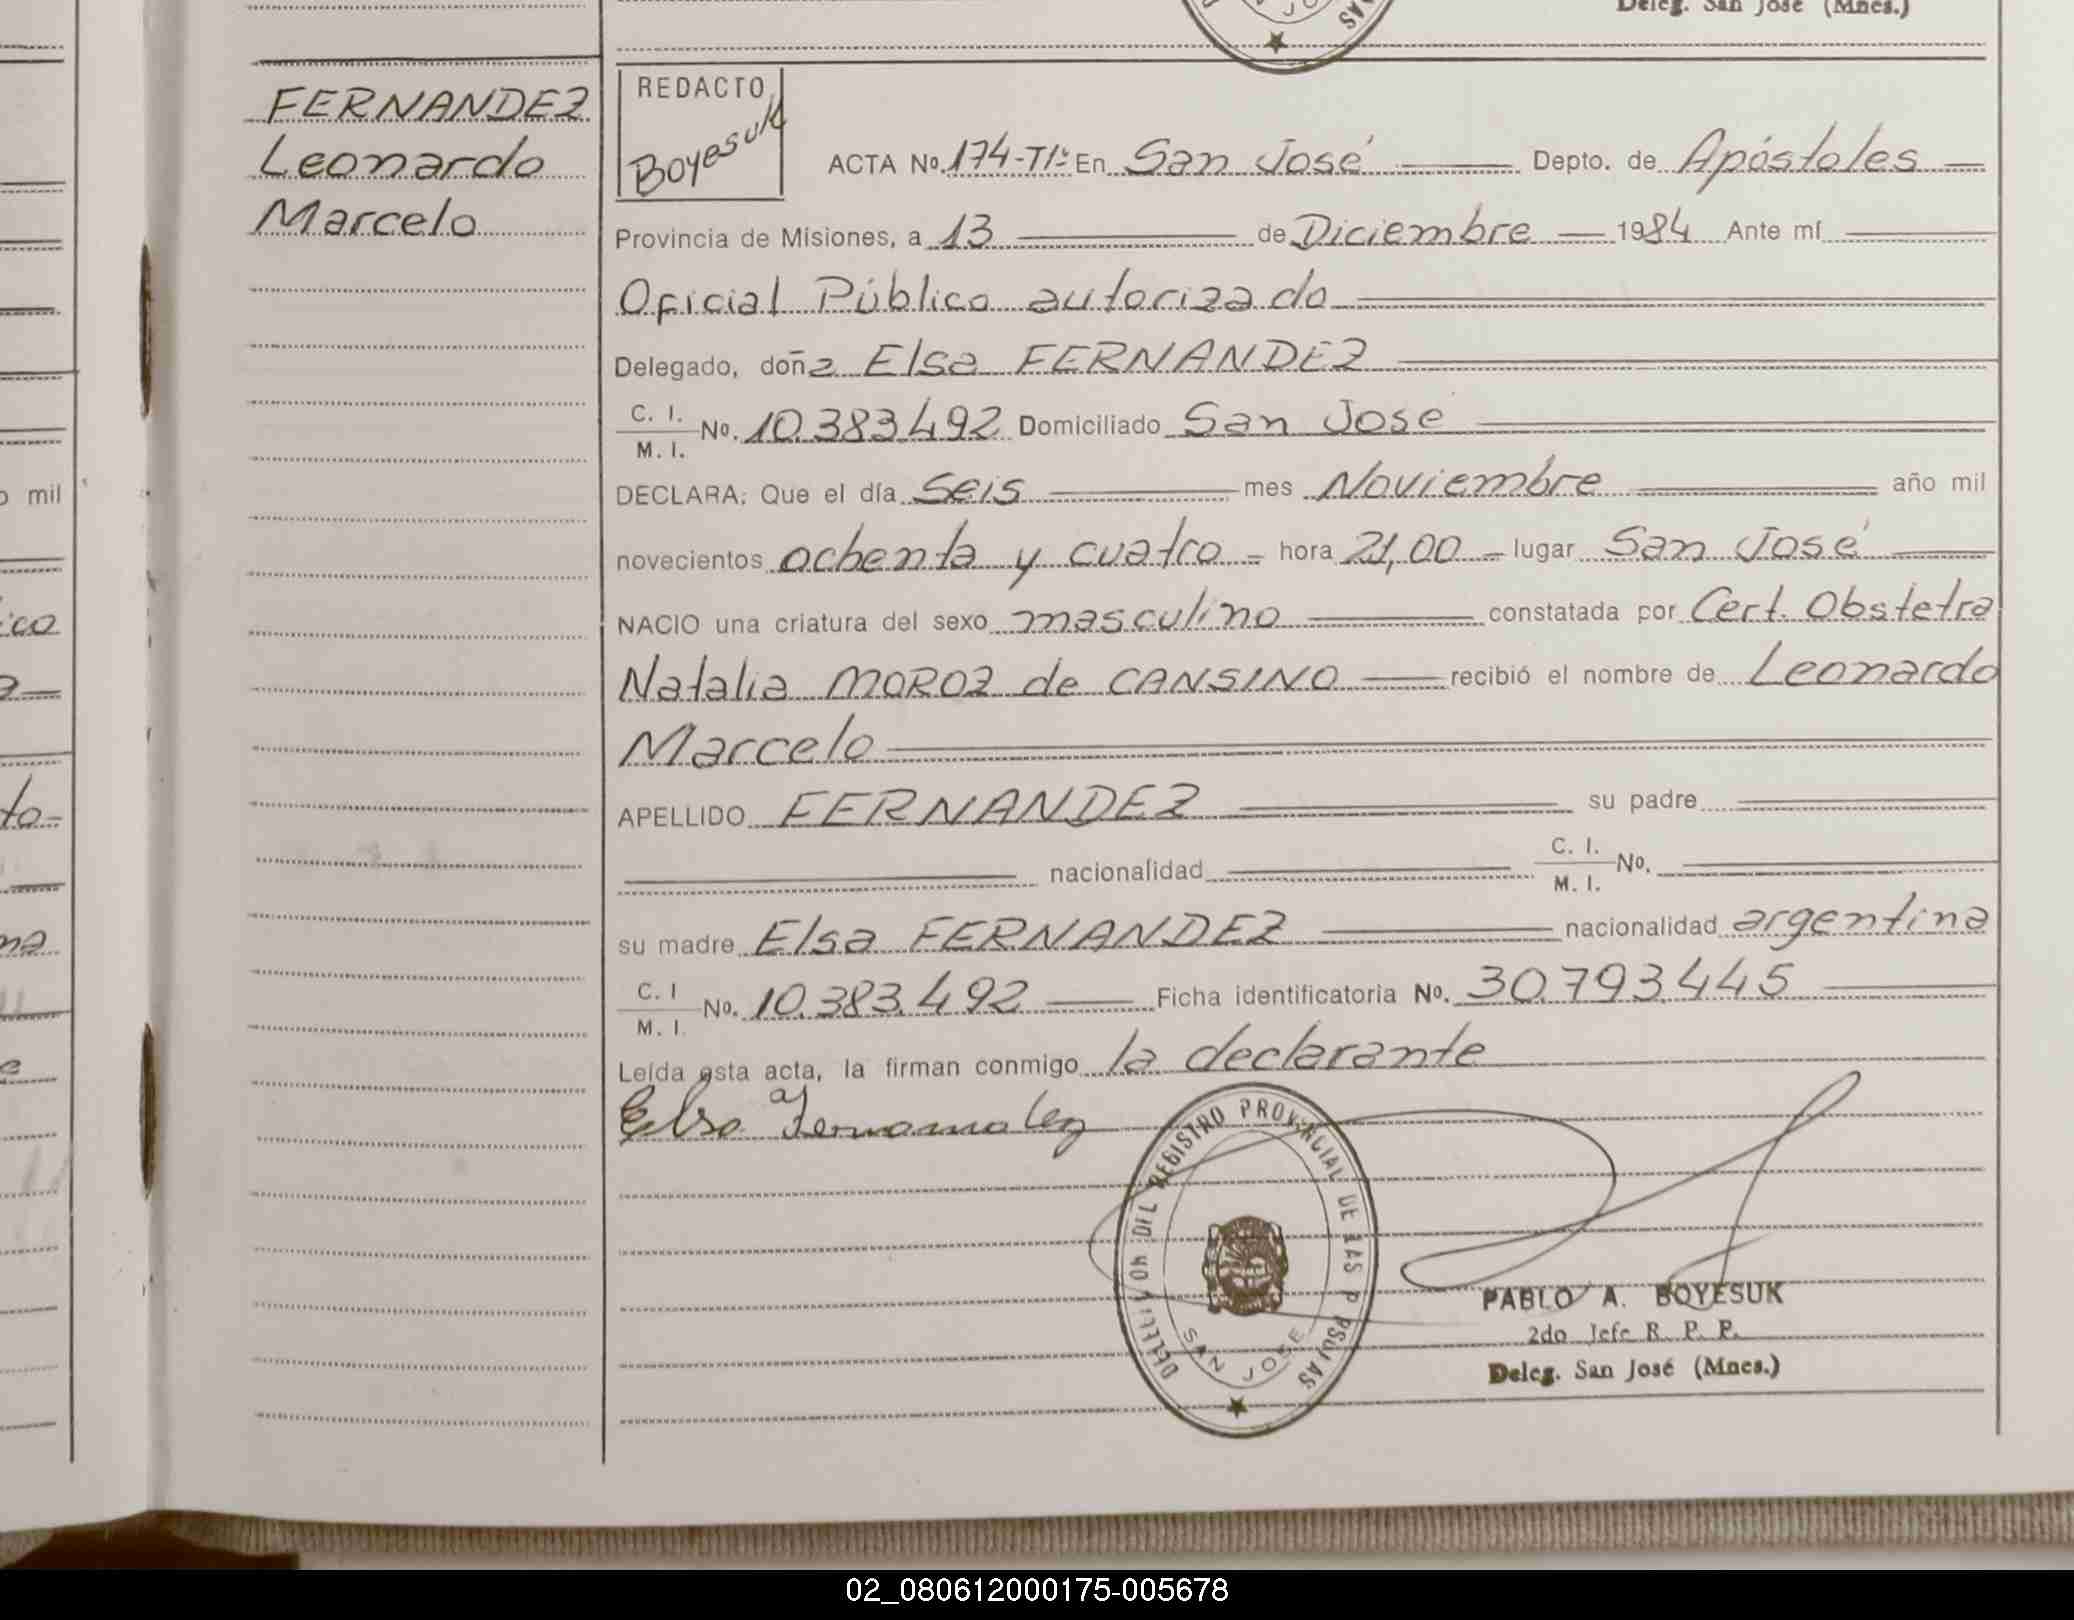 Deleg. San José (Mnes.)
FERNANDEZ
Leonardo
Marcelo
REDACTO
Boyesuk
ACTA No. 174-Tº1º En San José Depto. de Apóstoles
Provincia de Misiones, a 13 de Diciembre 1984 Ante mí
Oficial Público autorizado
Delegado, doña Elsa FERNANDEZ
C. I. M. I. No. 10.383.492 Domiciliado San José
DECLARA: Que el día Seis mes Noviembre año mil
novecientos ochenta y cuatro hora 21,00 lugar San José
NACIO una criatura del sexo masculino constatada por Cert. Obstetra
Natalia MOROZ de CANSINO recibió el nombre de Leonardo
Marcelo
APELLIDO FERNANDEZ su padre
nacionalidad C. I. M. I. No.
su madre Elsa FERNANDEZ nacionalidad argentina
C. I M. I. No. 10.383.492 Ficha identificatoria No. 30.793.445
Leída esta acta, la firman conmigo la declarante
Elsa Fernandez
DELEGACION DEL REGISTRO PROVINCIAL DE LAS PERSONAS
SAN JOSE
PABLO A. BOYESUK
2do Jefe R. P. P.
Deleg. San José (Mnes.)
o mil
ico
to
na
02_080612000175-005678